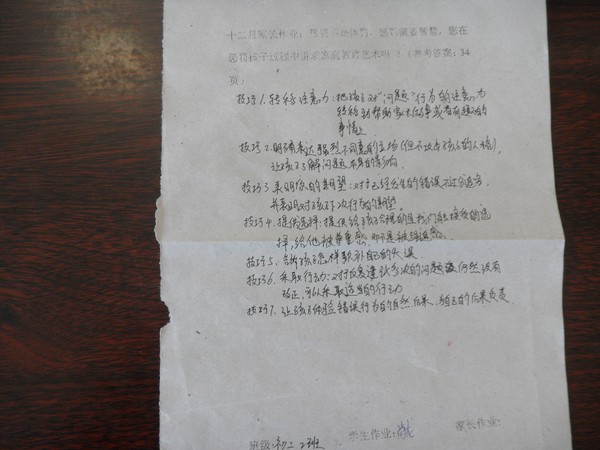 十二月家长作业:惩罚不是体罚,惩罚需要智慧,您在
惩罚孩子过程中讲求家庭教育艺术吗?(参考答案:34
页)
技巧1.转移注意力:把孩子对“问题”行为的注意力
转移到帮助家长做事或者有趣的
事情上
技巧2.明确表达强烈不同意的立场(但不攻击孩子的人格),
让孩子了解问题本身的影响。
技巧3.表明你的期望:对于已经发生的错误不过分追究,
并表明对孩子下次行为的期望。
技巧4.提供选择:提供给孩子合理的且我们能接受的选
择,给他被尊重感,而不是被强迫感。
技巧5.告诉孩子怎样弥补自己的失误
技巧6.采取行动:对于反复遭到多次的问题,仍然没有
改正,可以采取适当的行动
技巧7.让孩子体验错误行为的自然后果,为自己的后果负责
班级:初二2班
学生作业:
家长作业: